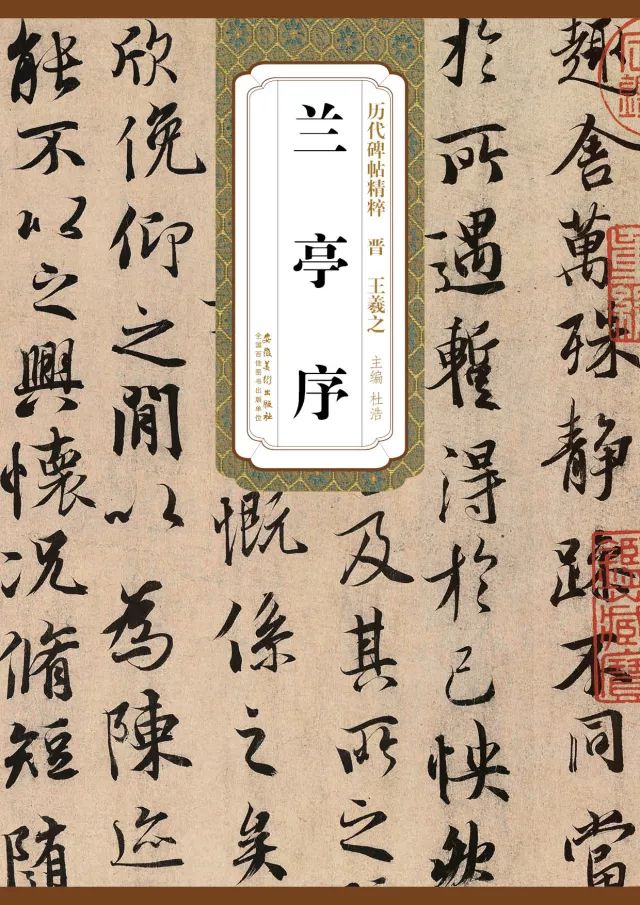 历代碑帖精粹 晋 王羲之
主编 杜浩
兰亭序
安徽美术出版社
全国百佳图书出版单位
趣舍萬殊静躁不同當
於所遇蹔得於己怏然
及其所之
慨係之矣
欣俛仰之閒以為陳迹
能不以之興懷況脩短隨